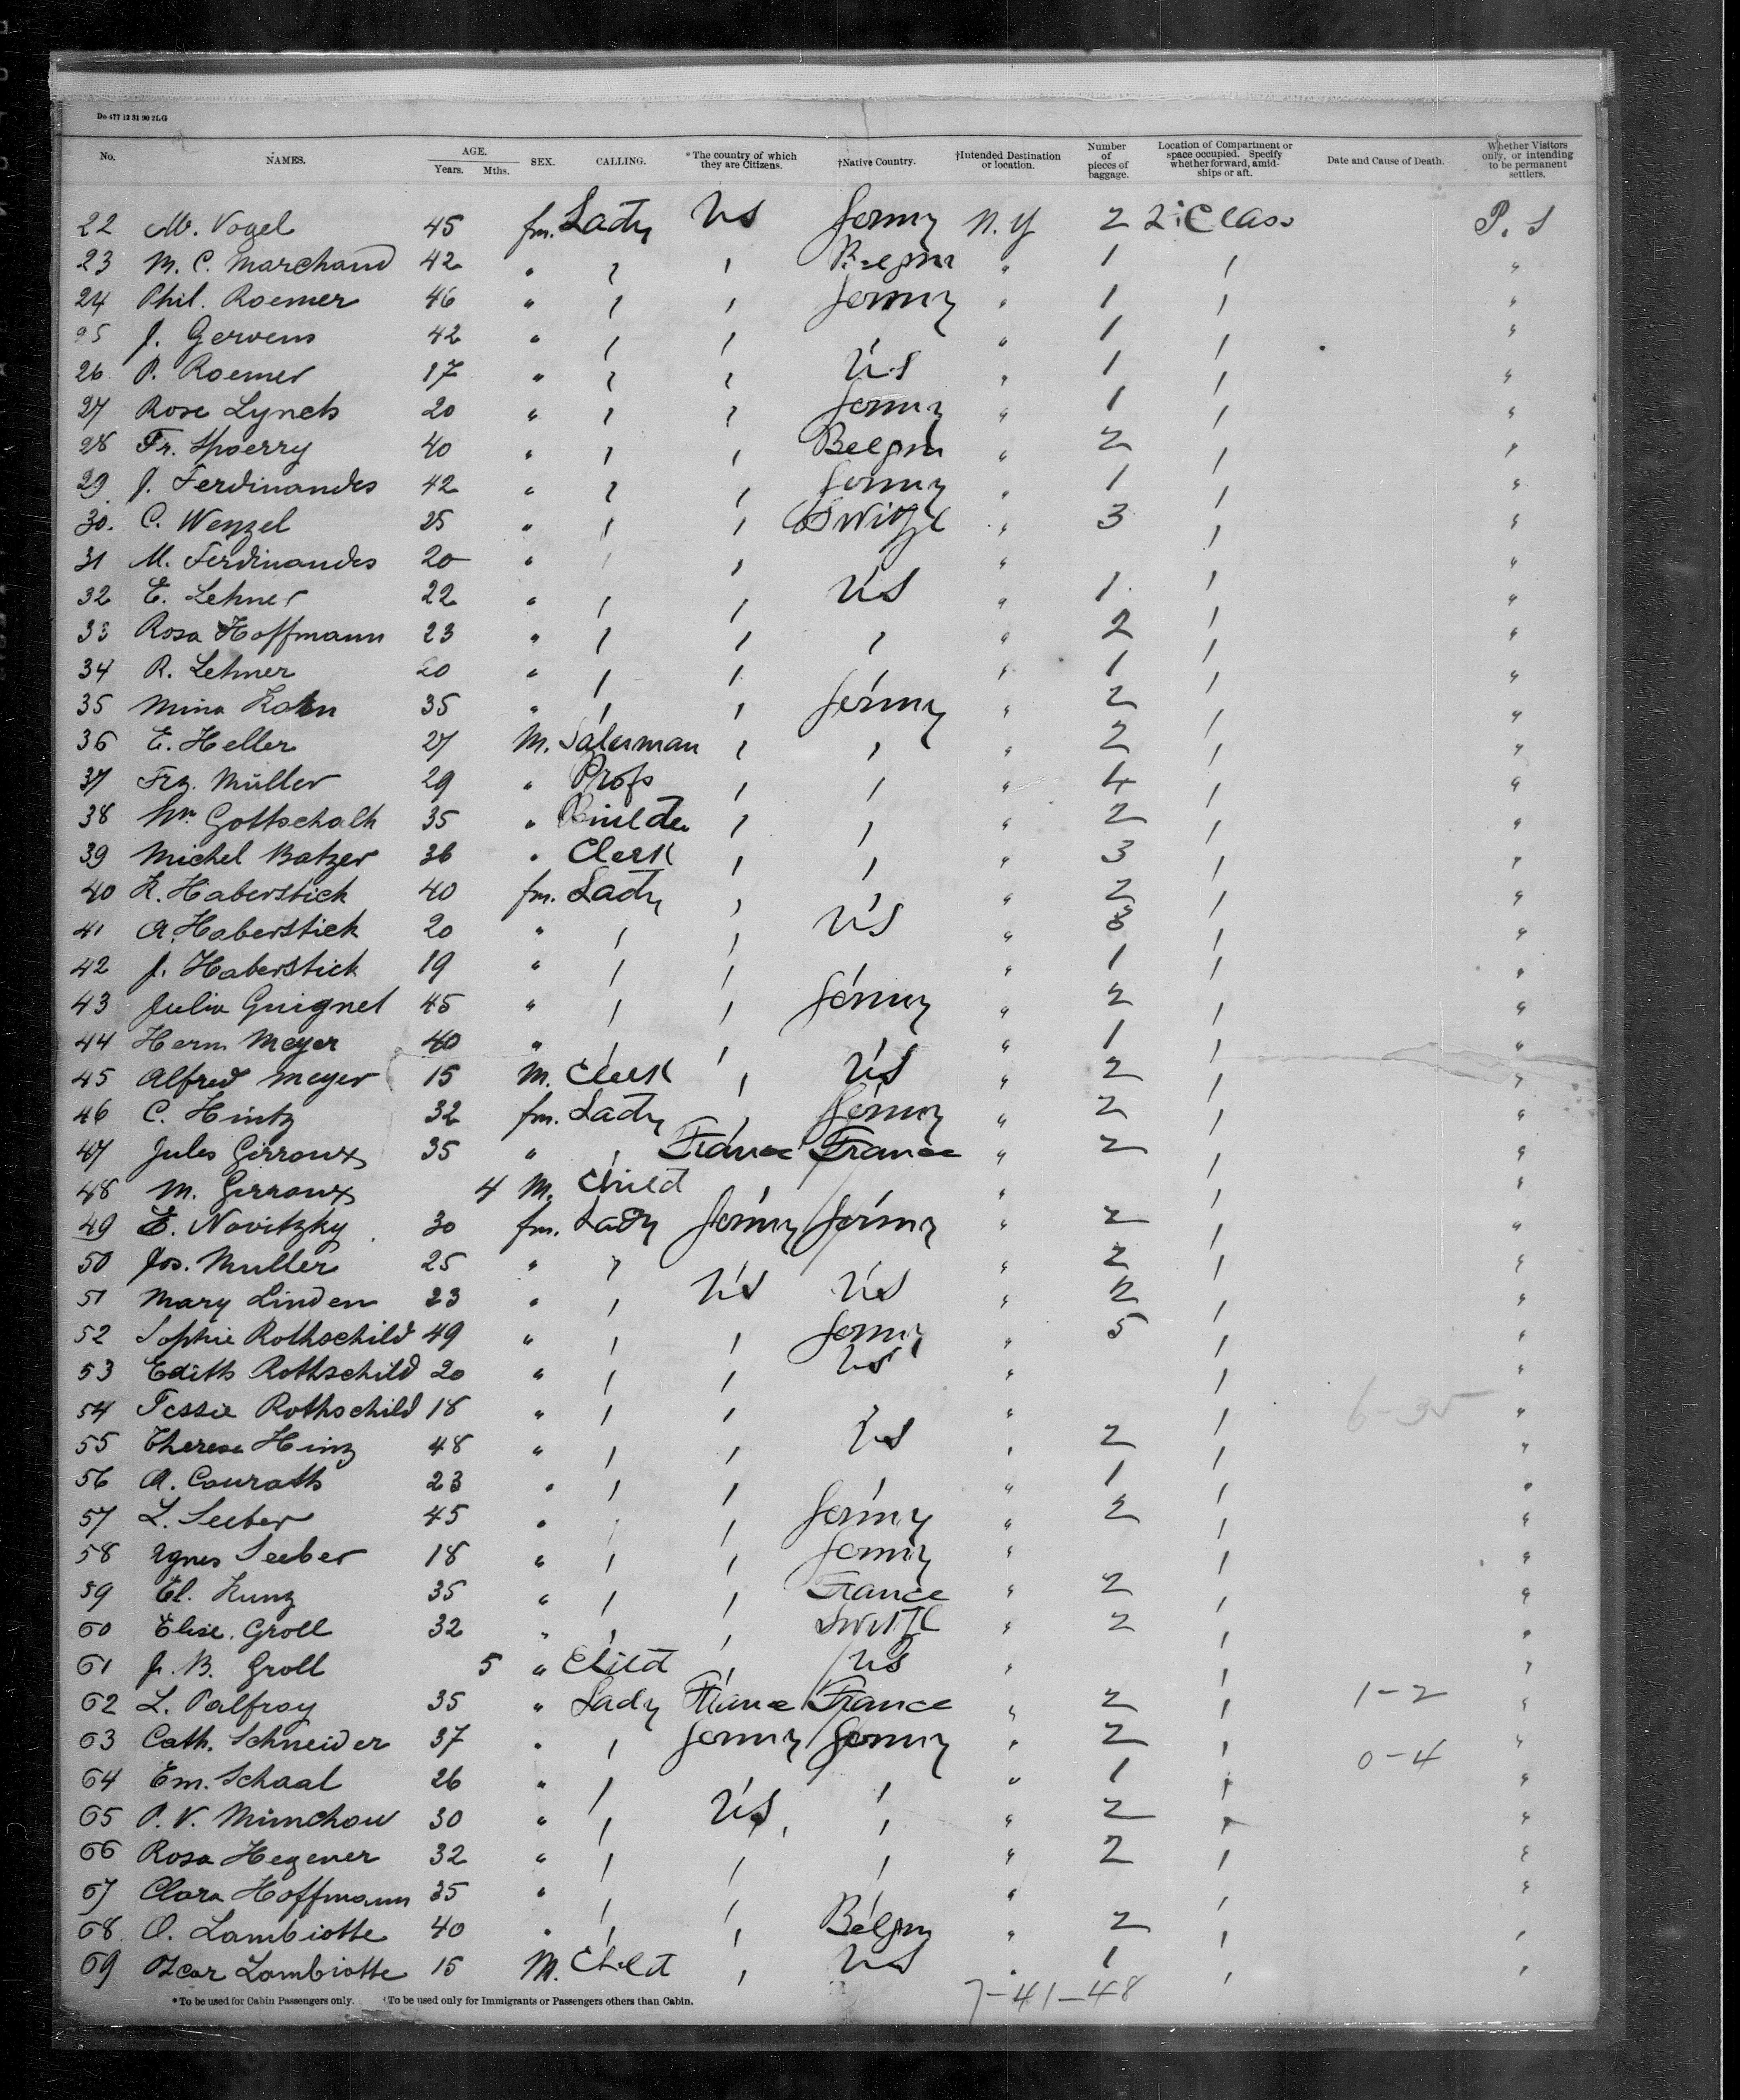 Do 477 12 31 90 2LG
No. NAMES. AGE. Years. Mths. SEX. CALLING. *The country of which they are Citizens. †Native Country. †Intended Destination or location. Number of pieces of baggage. Location of Compartment or space occupied. Specify whether forward, amidships or aft. Date and Cause of Death. Whether Visitors only, or intending to be permanent settlers.
22 M. Vogel 45 fm. Lady US Germy N.Y 2 2 Class P. S
23 M. C. Marchand 42 " " " Belgm " 1 " "
24 Phil. Roemer 46 " " " Germy " 1 " "
25 J. Gervens 42 " " " " 1 " "
26 P. Roemer 17 " " " US " 1 " "
27 Rose Lynch 20 " " " Germy " 1 " "
28 Fr. Spoerry 40 " " " Belgm " 2 " "
29 J. Ferdinandes 42 " " " Germy " 1 " "
30. C. Wenzel 25 " " " Switzl " 3 " "
31 M. Ferdinandes 20 " " " " " "
32 E. Lehner 22 " " " US " 1 " "
33 Rosa Hoffmann 23 " " " " " 2 " "
34 R. Lehner 20 " " " " 1 " "
35 Mina Kahn 35 " " " Germy " 2 " "
36 E. Heller 27 M. Salesman " " " 2 " "
37 Frz. Müller 29 " Profs " " " 4 " "
38 Wm Gottschalk 35 " Builder " " " 2 " "
39 Michel Batzer 36 " Clerk " " " 3 " "
40 K. Haberstich 40 fm. Lady " " 2 " "
41 A. Haberstich 20 " " " US " 3 " "
42 J. Haberstick 19 " " " " 1 " "
43 Julia Guignet 45 " " " Germy " 2 " "
44 Herm Meyer 40 " " " " 1 " "
45 Alfred Meyer 15 M. Clerk " US " 2 " "
46 C. Hintz 32 fm. Lady " Germy " 2 " "
47 Jules Girroux 35 " " France France " 2 " "
48 M. Girroux 4 M. Child " " " " "
49 E. Novitzky 30 fm. Lady Germy Germy " 2 " "
50 Jos. Muller 25 " " " 2 " "
51 Mary Linden 23 " " US US " 2 " "
52 Sophie Rothschild 49 " " " Germy " 5 " "
53 Edith Rothschild 20 " " " US " " "
54 Tessie Rothschild 18 " " " " " "
55 Therese Hinz 48 " " " US " 2 " "
56 A. Conrath 23 " " " " 1 " "
57 L. Seeber 45 " " " Germy " 2 " "
58 Agnes Seeber 18 " " " Germy " " "
59 El. Kunz 35 " " " France " 2 " "
60 Elise. Groll 32 " " " Switzl " 2 " "
61 J. B. Groll 5 " Child " US " " "
62 L. Palfroy 35 " Lady France France " 2 " 1-2 "
63 Cath. Schneider 37 " " Germy Germy " 2 " "
0-4
64 Em. Schaal 26 " " " " 1 " "
65 P. V. Münchow 30 " " US " " 2 " "
66 Rosa Hegener 32 " " " " " 2 " "
67 Clara Hoffmann 35 " " " " " "
68. O. Lambiotte 40 " " " Belgm " 2 " "
69 Oscar Lambiotte 15 M. Child " US " 1 " "
7-41-48
*To be used for Cabin Passengers only. †To be used only for Immigrants or Passengers others than Cabin.